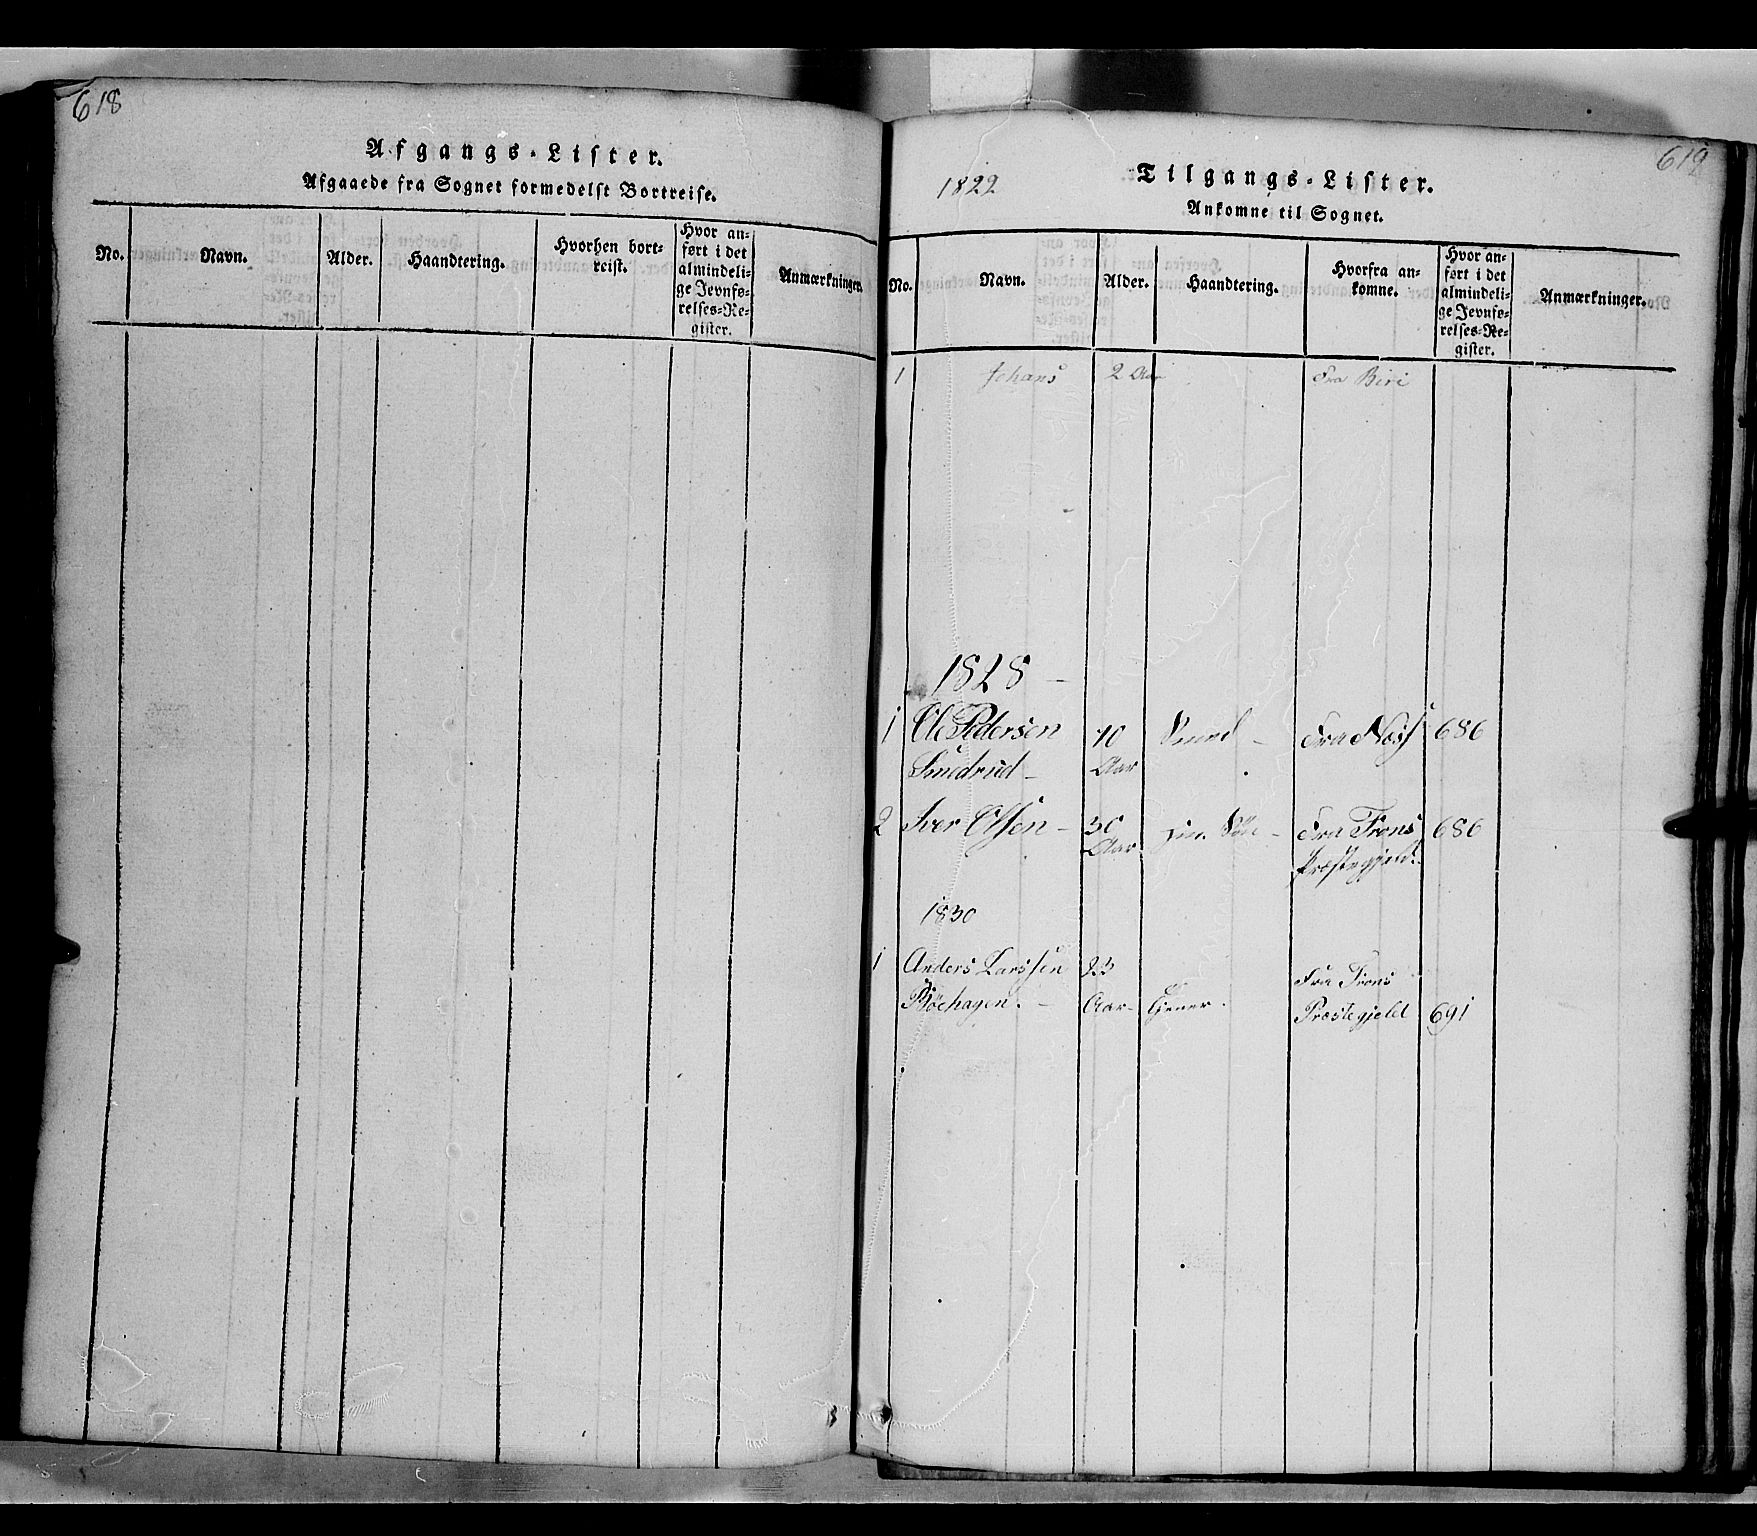 618
Afgangs-Lister.
Afgaaede fra Sognet formedelst Bortreise.
No.
Navn.
Alder.
Haandtering.
Hvorhen bort-
reist.
Hvor an-
ført i det
almindeli-
ge Jevnfø-
relses-Re-
gister.
Anmærkninger.
619
1822
Tilgangs-Lister.
Ankomne til Sognet.
No.
Navn.
Alder.
Haandtering.
Hvorfra an-
komne.
Hvor an-
ført i det
almindeli-
ge Jevnfø-
relses-Re-
gister.
Anmærkninger.
1 Johans 2 Aar Fra Biri
1828 –
1 Ole Pedersen 40 Smed – Fra Næss 686
Smedrud – Aar
2 Iver Olsen – 30 Fra Frons 686
Aar Præstegjeld
1830
1 Anders Larssen 23 Fra Frons
Böehagen. – Aar – tjener. Præstegjeld 691